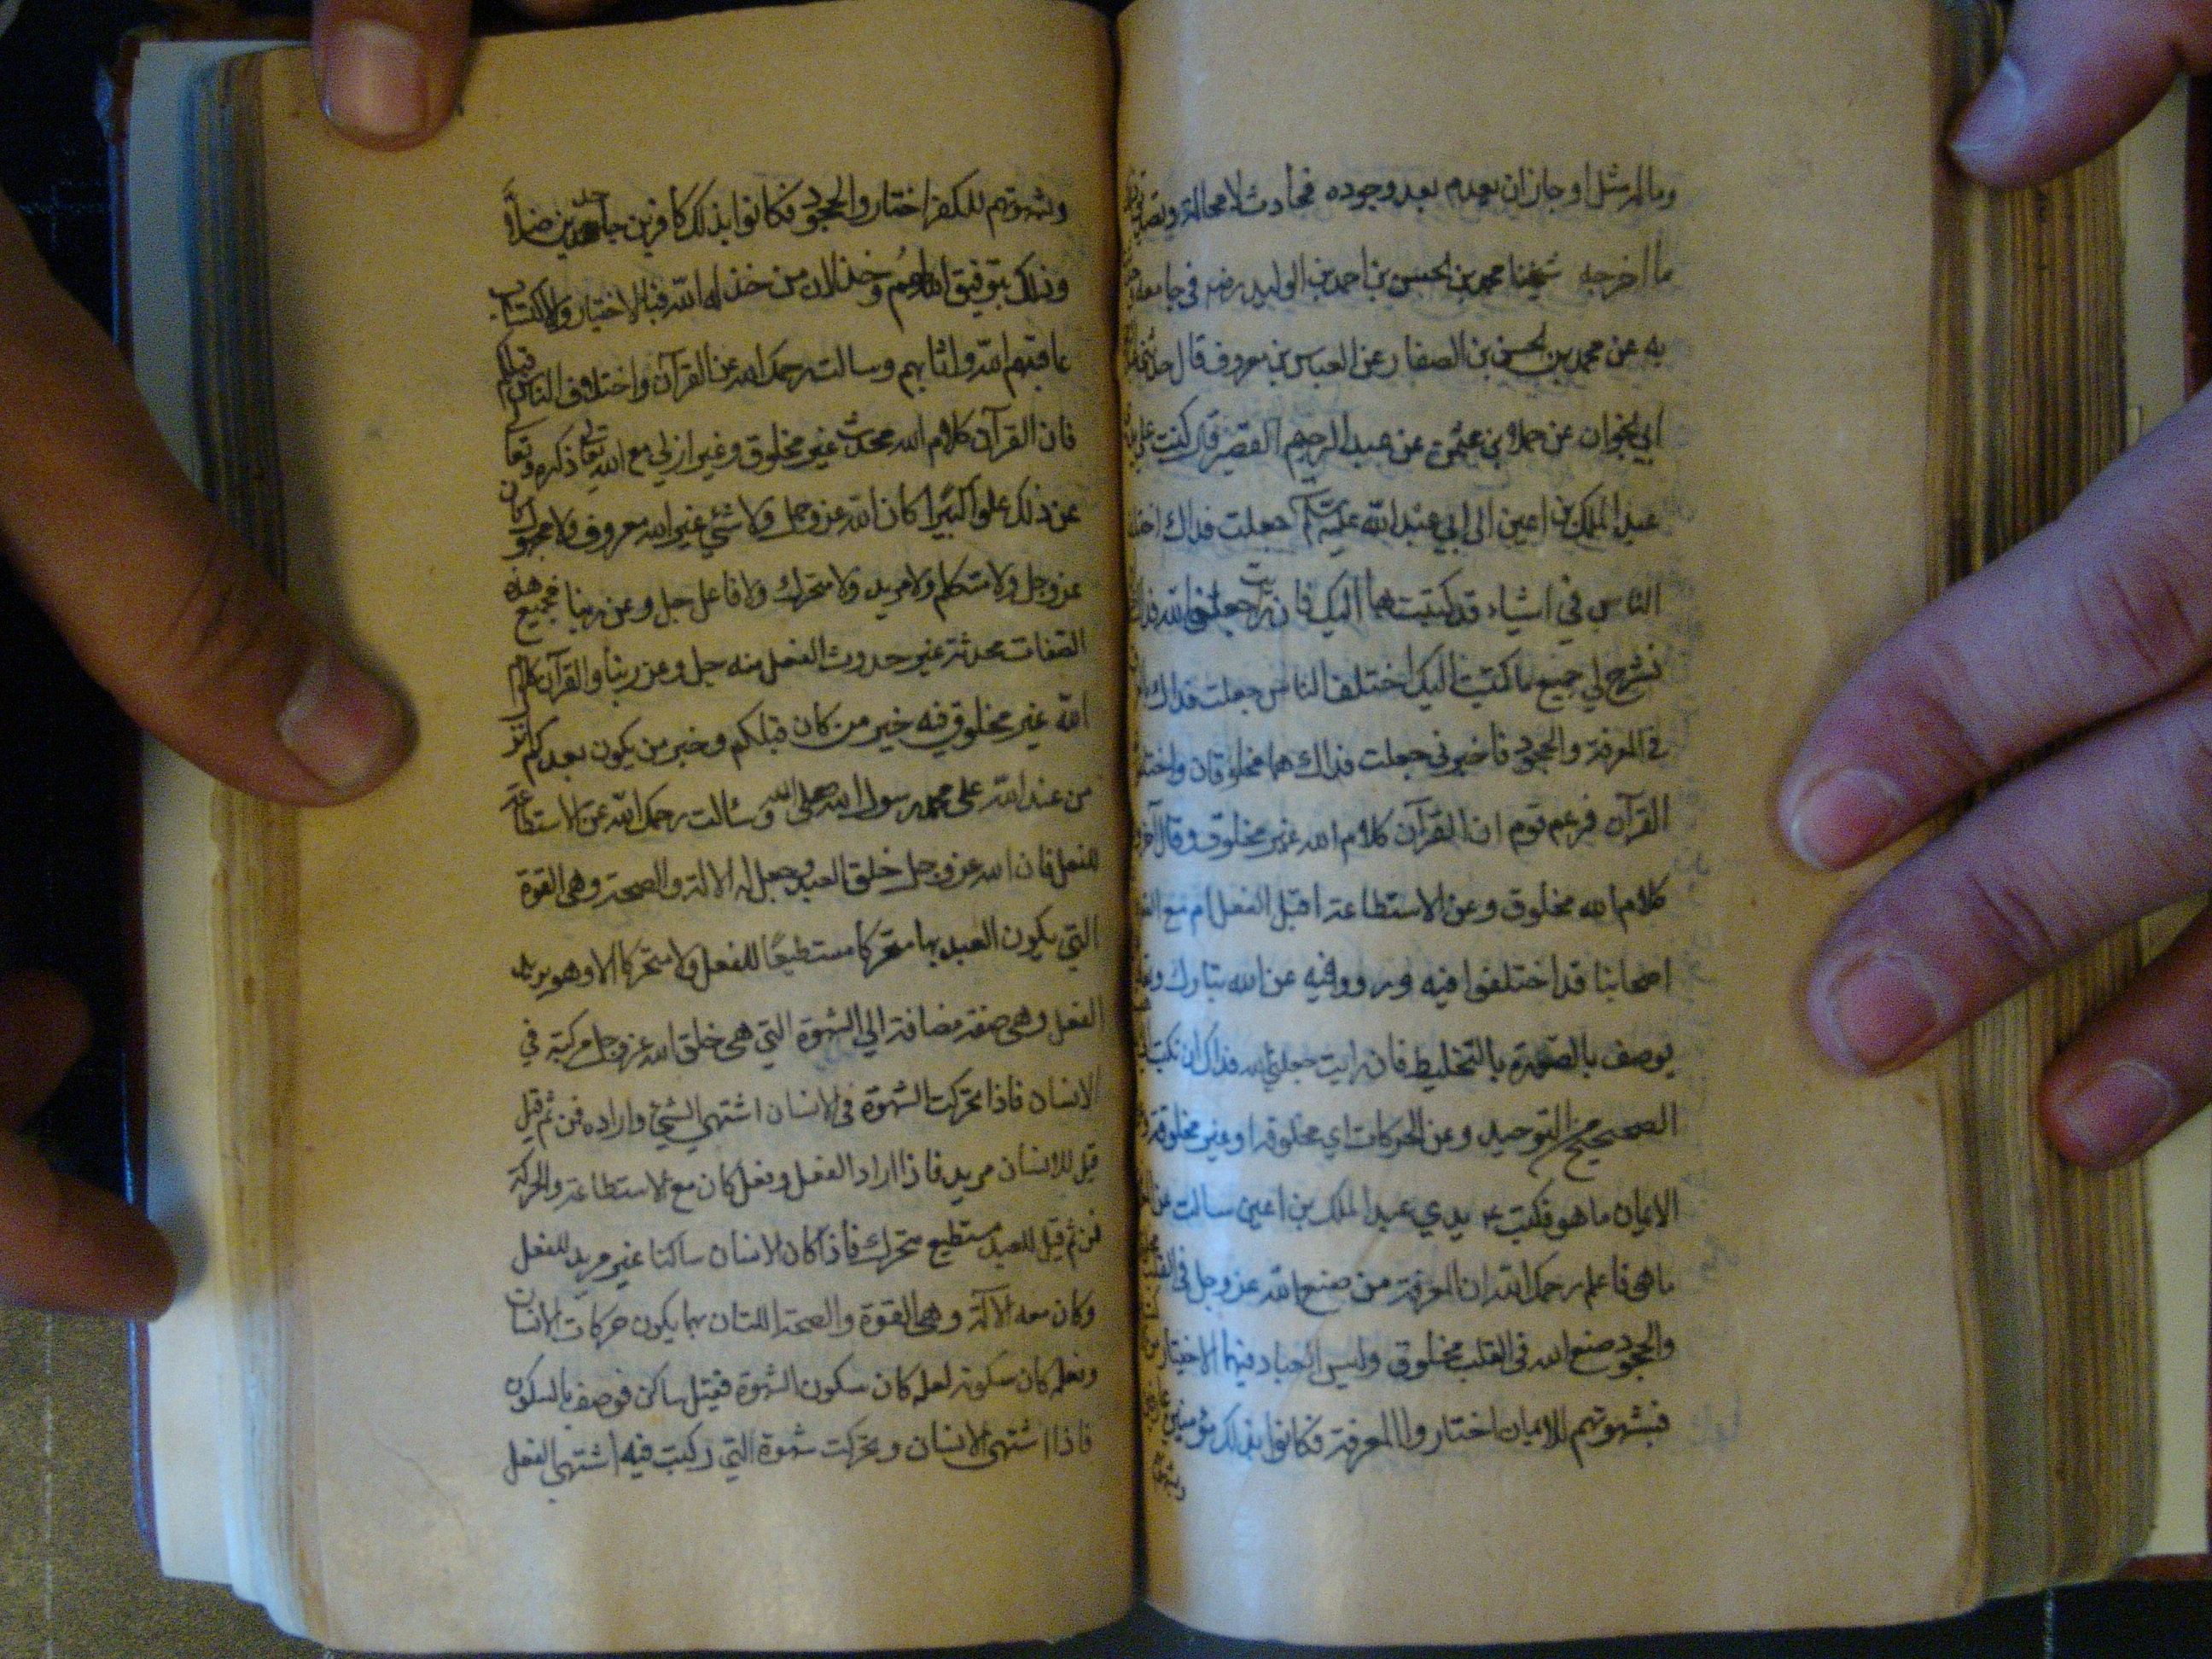 وما له مثل او جاز ان يعدم بعد وجوده فحادث لا محالة وتصديق
ما اخرجه شيخنا محمد بن الحسن بن احمد بن الوليد رضه في جامعه
به عن محمد بن الحسن بن الصفار عن العباس بن معروف قال حدثنا
ابي نجران عن حماد بن عثمن عن عبد الرحيم القصير قال كنت على يد
عبد الملك بن اعين الى ابي عبد الله عليه السلم جعلت فداك اختلف
الناس في اشياء قد كتبت بها اليك فان رايت جعلني الله فداك
تشرح لي جميع ما كتبت اليك اختلف الناس جعلت فداك
في المعرفة والجحود فاخبرني جعلت فداك هما مخلوقان واختلفوا
القرآن فزعم قوم ان القرآن كلام الله غير مخلوق وقال آخرون
كلام الله مخلوق وعن الاستطاعة اقبل الفعل ام مع الفعل
اصحابنا قد اختلفوا فيه ورووا فيه عن الله تبارك وتعالى
يوصف بالصورة بالتخليط فان رايت جعلني الله فداك ان تكتب
الصحيح من التوحيد وعن الحركات اي مخلوقة او غير مخلوقة
الايمان ما هو فكتب ع يدي عبد الملك بن اعين سالت عن
ما هي فاعلم رحمك الله ان المعرفة من صنع الله عز وجل في القلب
والجحود صنع الله في القلب مخلوق وليس للعباد فيهما الاختيار
فبشهوتهم للايمان اختاروا المعرفة فكانوا بذلك مؤمنين
وشهوتهم للكفر اختاروا الجحود فكانوا بذلك كافرين جاحدين ضلالا
وذلك بتوفيق الله لهم وخذلان من خذله الله فبالاختيار والاكتساب
عاقبهم الله واثابهم وسالت رحمك الله عن القرآن واختلاف الناس قبلكم
فان القرآن كلام الله محدث غير مخلوق وغير ازلي مع الله تعالى ذكره وتعالى
عن ذلك علوا كبيرا كان الله عز وجل ولا شيء غير الله معروف ولا مجهول كان
عز وجل ولا متكلم ولا مريد ولا متحرك ولا فاعل جل وعز ربنا فجميع هذه
الصفات محدثة غير حدوث الفعل منه جل وعز ربنا والقرآن كلام
الله غير مخلوق فيه خبر من كان قبلكم وخبر من يكون بعدكم انزل
من عند الله على محمد رسول الله صلى الله وسئالت رحمك الله عن الاستطاعة
للفعل فان الله عز وجل خلق العبد وجعل له الالة والصحة وهي القوة
التي يكون العبد بها متحركا مستطيعا للفعل ولا متحركا الا وهو يريد
الفعل وهي صفة مضافة الي الشهوة التي هي خلق الله عز وجل مركبة في
الانسان فاذا تحركت الشهوة في الانسان اشتهى الشيء واراده فمن ثم قيل
قيل للانسان مريد فاذا اراد الفعل وفعل كان مع الاستطاعة والحركة
فمن ثم قيل للعبد مستطيع متحرك فاذا كان الانسان ساكنا غير مريد للفعل
وكان معه الآلة وهي القوة والصحة اللتان بهما يكون حركات الانسان
وفعله كان سكونه لعلة كان سكون الشهوة فقيل ساكن فوصف بالسكون
فاذا اشتهى الانسان وتحركت شهوة التي ركبت فيه اشتهى الفعل